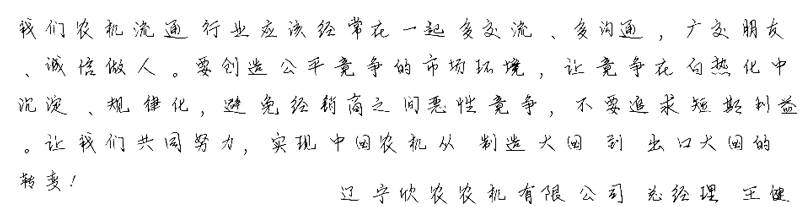 我们农机流通行业应该经常在一起多交流、多沟通，广交朋友
、诚信做人。要创造公平竞争的市场环境，让竞争在白热化中
沉淀、规律化，避免经销商之间恶性竞争，不要追求短期利益
。让我们共同努力，实现中国农机从 制造大国 到 出口大国的
转变！
辽宁欣农农机有限公司 总经理 王健